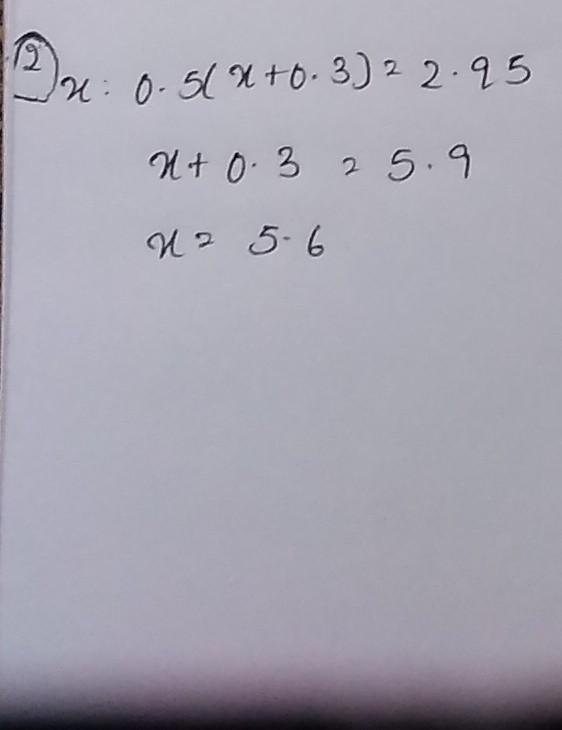 12) x: 0.5(x+0.3) = 2.95
x+ 0.3 = 5.9
x = 5.6